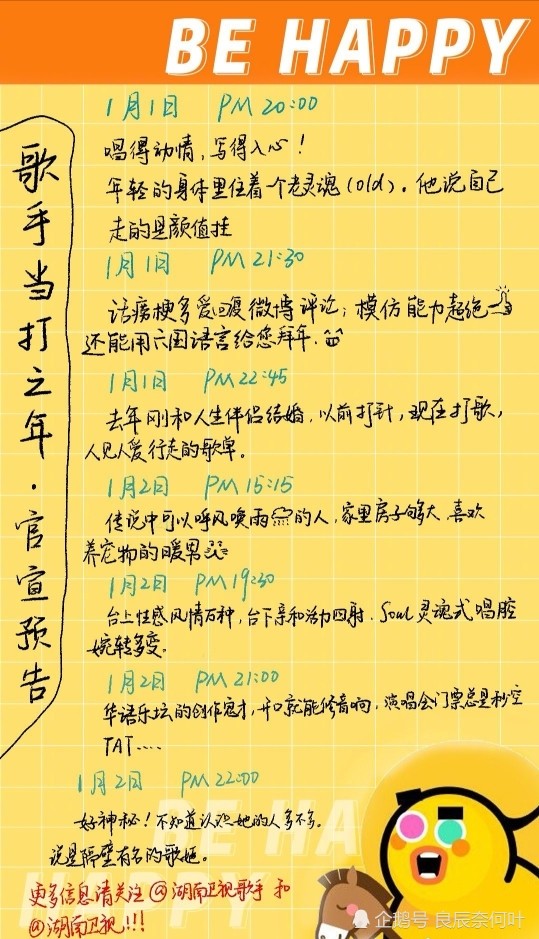 BE HAPPY
歌手当打之年·官宣预告
1月1日 PM 20:00
唱得动情，写得入心！
年轻的身体里住着一个老灵魂(old)。他说自己
走的是颜值挂
1月1日 PM 21:30
话痨梗多爱回复微博评论；模仿能力超绝
还能用六国语言给您拜年.
1月1日 PM 22:45
去年刚和人生伴侣结婚，以前打针，现在打歌，
人见人爱行走的歌单。
1月2日 PM 15:15
传说中可以呼风唤雨的人，家里房子够大，喜欢
养宠物的暖男
1月2日 PM 19:30
台上性感风情万种，台下亲和活力四射. Soul灵魂式唱腔
婉转多变。
1月2日 PM 21:00
华语乐坛的创作鬼才，开口就能修音响，演唱会门票总是秒空
TAT....
1月2日 PM 22:00
好神秘！不知道认识她的人多不多。
说是隔壁有名的歌姬。
更多信息请关注@湖南卫视歌手 和
@湖南卫视!!!
BE HA
HAPPY
企鹅号 良辰奈何叶